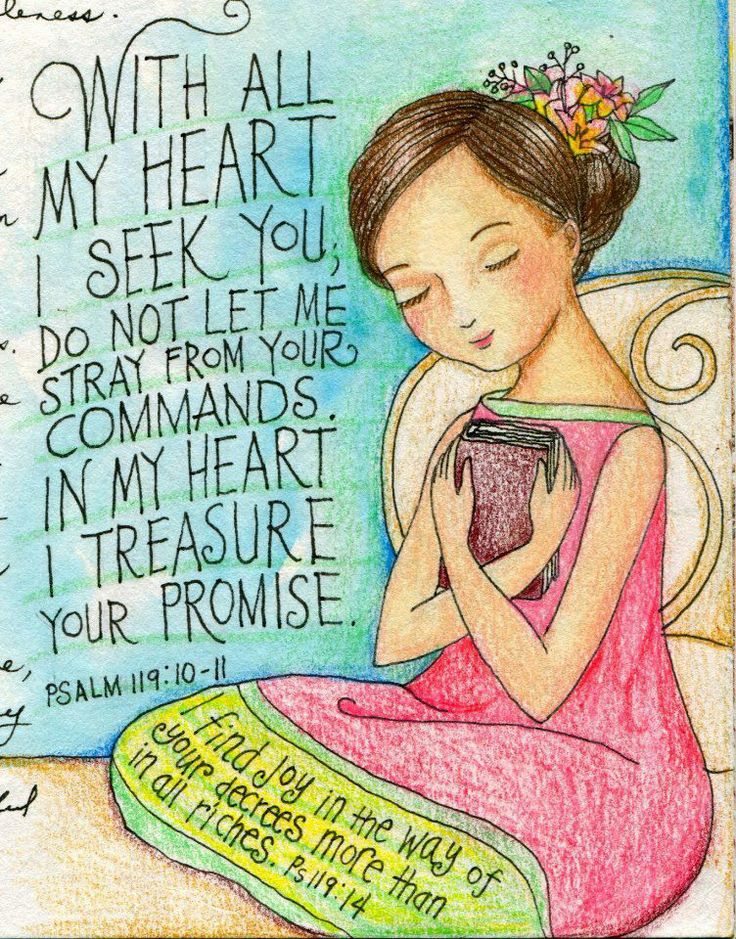 WITH ALL
MY HEART
I SEEK YOU;
DO NOT LET ME
STRAY FROM YOUR
COMMANDS.
IN MY HEART
I TREASURE
YOUR PROMISE.
PSALM 119:10-11
I find joy in the way of
your decrees more than
in all riches. Ps 119:14